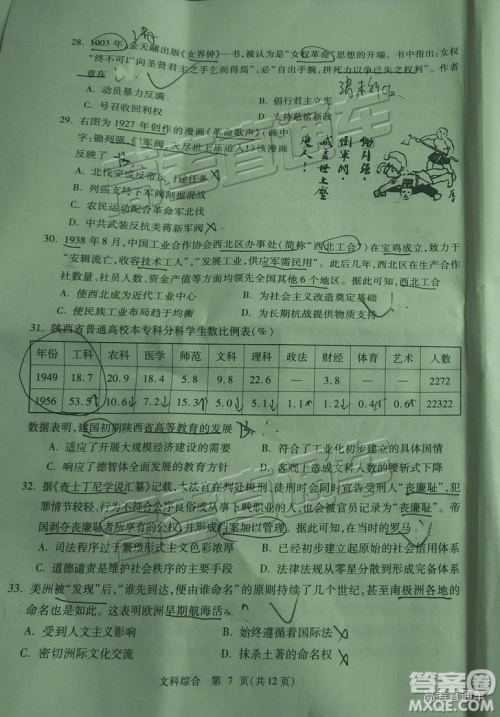 28. 1903年,金天翮出版《女界钟》一书,被认为是“女权革命”思想的开端。书中指出:女权
“终不可‘向圣贤君主之手乞而得焉’,必‘自出手腕,拼死力以争已失之权利’。作者
意在
A. 动员暴力反满
B. 倡行君主立宪
C. 号召收回利权
D. 支持慈禧新政
29. 右图为1927年创作的漫画《革命歌声》(画中
字:锄列强、军阀,大尽世上万恶)该漫画
反映了
A. 北伐完成反帝反封建任务
B. 列强支持下军阀制据混战
C. 农民运动配合革命军北伐
D. 中共武装反抗美蒋新军阀
30. 1938年8月,中国工业合作协会西北区办事处(简称“西北工合”)在宝鸡成立,致力于
“安辑流亡,收容技术工人”、“发展手工业,供应军需民用”。此后几年,西北区在生产合作
社数量、社员人数、资金产值等方面均领先全国其他6个地区。据此,西北工合
A. 使西北成为近代工业中心
B. 为社会主义改造奠定基础
C. 改变了工业布局与流向
D. 为长期抗战提供物质支持
31. 陕西省普通高校本专科分科学生数比例表(%)
年份 工科 农科 医学 师范 文科 理科 政法 财经 体育 艺术 人数
1949 18.7 20.9 18.4 5.8 9.8 22.6 — 3.8 — — 2272
1956 53.5 7.2 15.3 15.6 2.1 5.1 0.4 0.6 22322
数据表明,建国初期陕西省高等教育的发展
A. 适应了开展大规模经济建设的需要
B. 符合了工业化初步建立的具体国情
C. 体现了德智体全面发展的教育方针
D. 凸显了合校造成文科人数的腰斩式下降
32. 据《查士丁尼学说汇纂》记载,大法官在判处极刑、徒刑时会同时宣告受刑人“丧廉耻”,犯
罪情节较轻、行为不符合公序良俗或从事下贱职业的人,也会被官员记录为“丧廉耻”。帝
国剥夺丧廉耻者所享有的公权,并形成档案加以管理。由此可知,在当时的罗马
A. 司法程序过于繁琐形式主义色彩浓厚
B. 已建立起原始的社会信用体系
C. 道德谴责是维护社会秩序的主要手段
D. 法律法规从零星分散到形成体系
33. 美洲被“发现”后,“谁先到达,便由谁命名”的原则持续了几个世纪,甚至南极洲各地的
命名也是如此。这表明欧洲早期航海活
A. 受到人文主义影响
B. 始终遵循着国际法
C. 密切洲际文化交流
D. 抹杀土著的命名权
文科综合 第 7 页(共12页)
答案圈